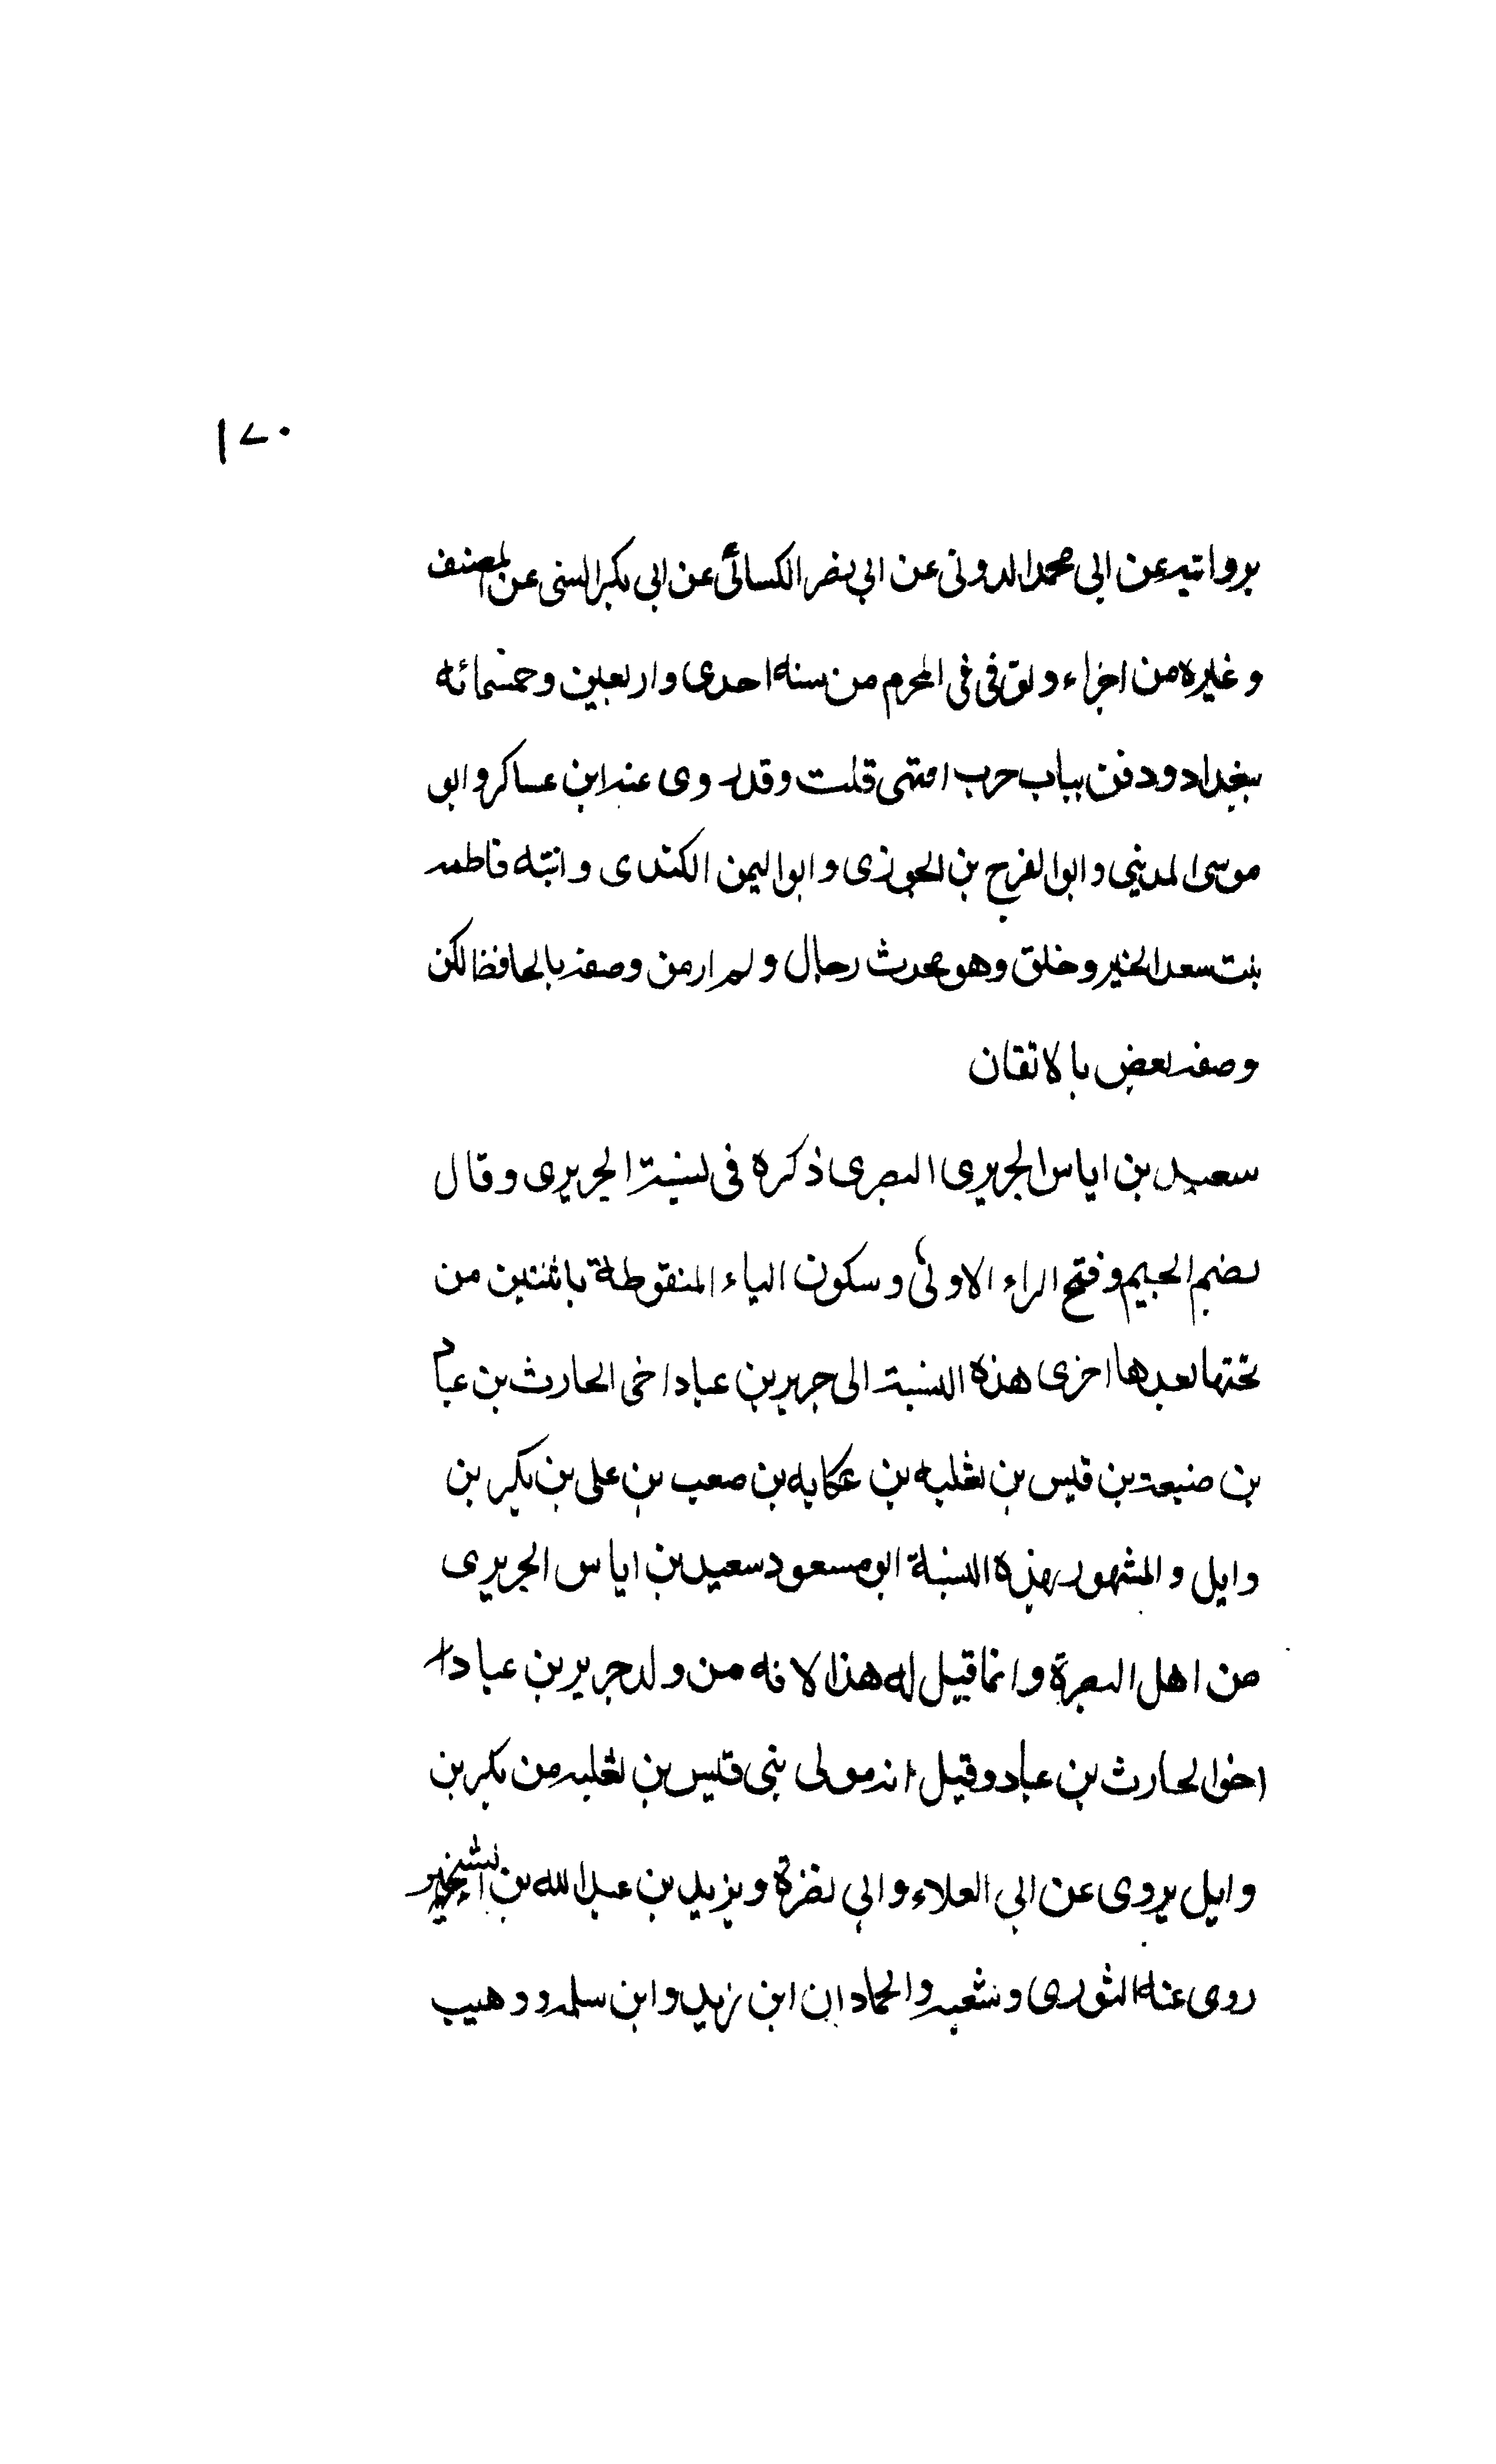 ۱۷۰
بروايته عن ابى محمد الدونى عن ابي نصر الكسائى عن ابى بكر السنى عن المصنف
وغيره من اجزاء وتوفى فى المحرم من سنه احدى واربعين وخمسمائه
ببغداد ودفن بباب حرب انتهى قلت وقد روى عنه ابن عساكر وابو
موسى المدينى وابو الفرج بن الجوزى وابو اليمن الكندى وابنته فاطمه
بنت سعد الخير وخلق وهو محدث رحال ولم ار من وصفه بالحافظ لكن
وصفه بعض بالاتقان
سعيد بن اياس الجريرى البصرى ذكره فى نسبة الجريرى وقال
بضم الجيم وفتح الراء الاولى وسكون الياء المنقوطة باثنتين من
تحتها بعدها اخرى هذه النسبة الى جرير بن عباد اخى الحارث بن عباد
بن ضبيعة بن قيس بن ثعلبه بن عكابه بن صعب بن على بن بكر بن
وايل والمشهور بهذه النسبة ابو مسعود سعيد بن اياس الجريرى
من اهل البصرة وانما قيل له هذا لانه من ولد جرير بن عباد
اخو الحارث بن عباد وقيل انه مولى بنى قيس بن ثعلبه من بكر بن
وايل يروى عن ابى العلاء وابي نضرة ويزيد بن عبد الله بن الشخير
روى عنه الثورى وشعبه والحمادان ابن زيد وابن سلمه ووهيب